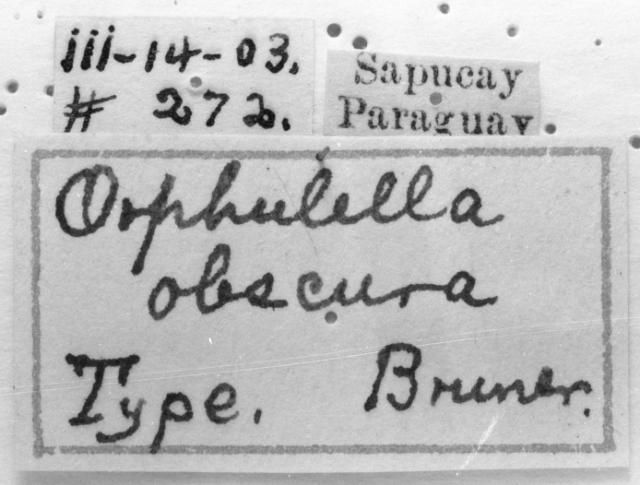 iii-14-03.
# 272.
Sapucay
Paraguay
Orphulella
obscura
Type. Bruner.